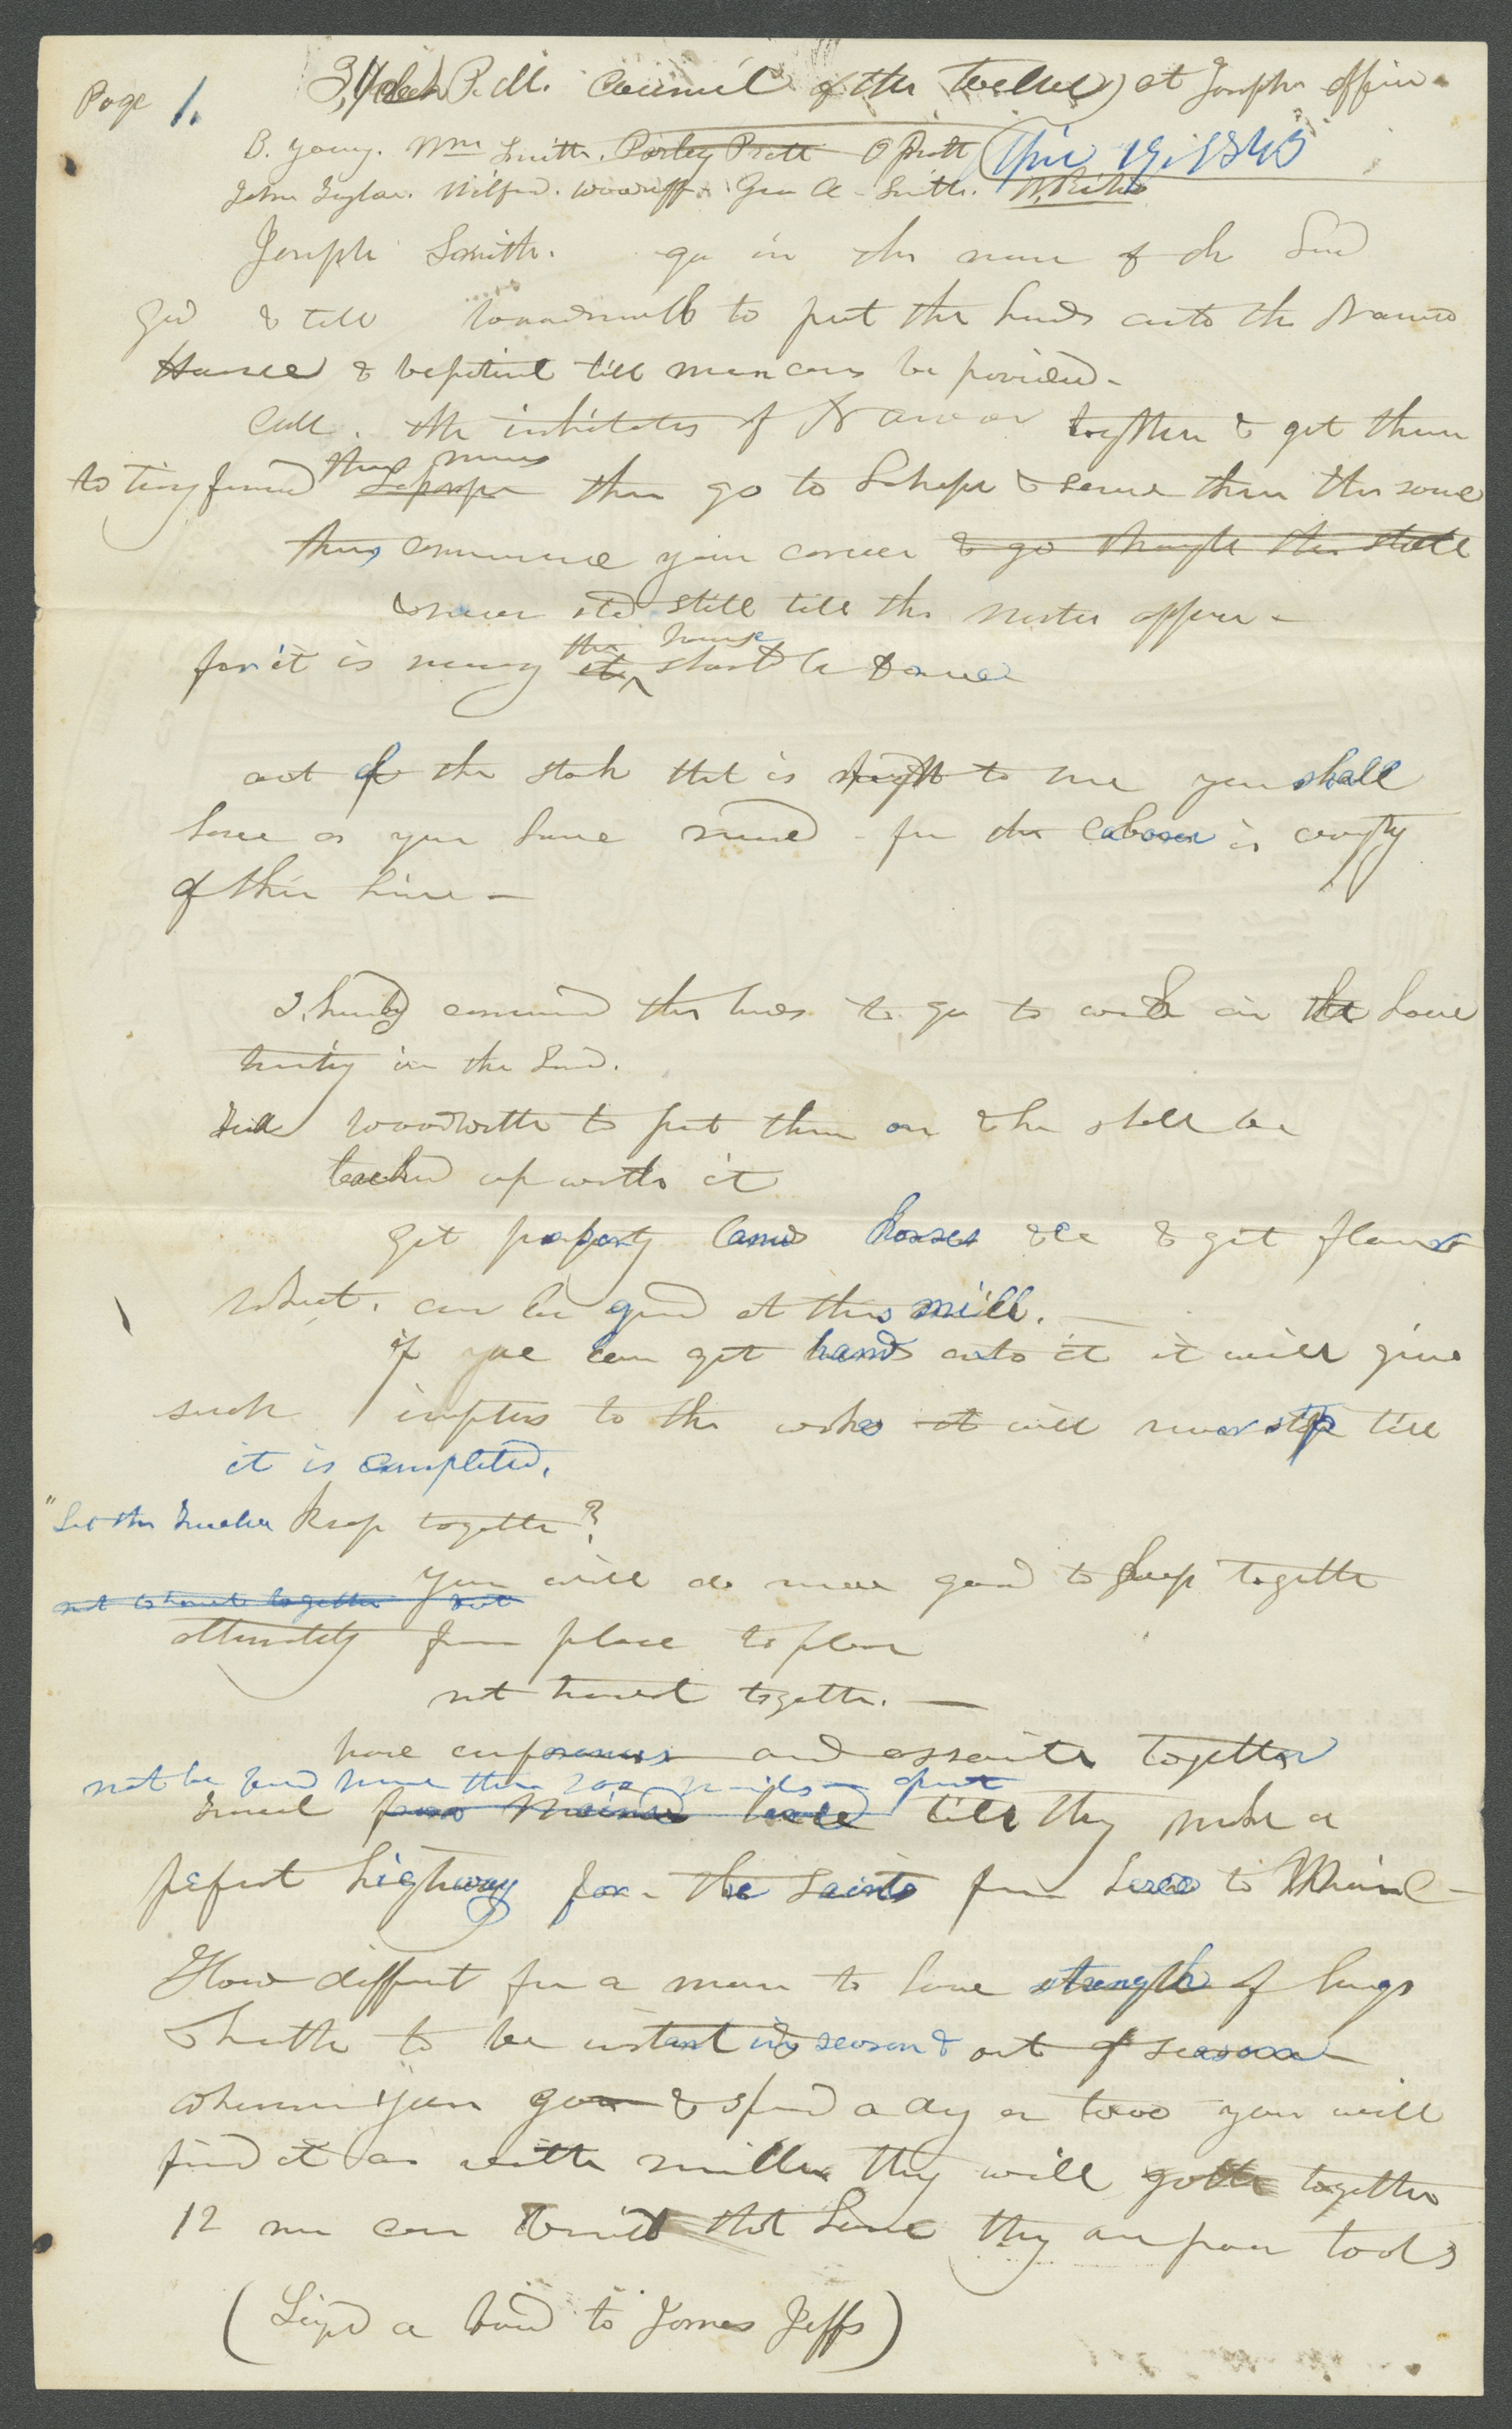 Page 1.
3 o clock P.M. Council of the Twelve) at Josephs office.
B. Young. Wm Smith. Parley Pratt O Pratt April 19. 1843
John Taylor. Wilford. Woodruff. Geo A. Smith. W. Richards
Joseph Smith. go in the name of the Lord
God & tell Woodworth to put the hands onto the Nauvoo
House & be patient till means can be provided.
Call. the inhabitants of Nauvoo together & get them
to bring in means
then go to Laharpe & serve them the same
thus commence your career & go through the State
& never stand still till the master appear -
for it is necessary it the house should be done
out of the stock that is in my hand to me you shall
have as you have need - for the laborer is worthy
of his hire -
I hereby command the hands to go to work on the house
trusting in the Lord.
Tell Woodworth to put them on & he shall be
backed up with it
get property lands horses &c & get flour
wheat. can be ground at this mill.
if you can get hands onto it it will give
such impetus to the work it will never stop till
it is completed.
"Let the Twelve keep together?
You will do more good to keep together
not to travel together but
alternately from place to place
not travel together. -
have conferences and associate together
not be found more than 200 miles apart
travel from Maine here till they make a
perfect highway for the saints from here to Maine -
How different for a man to have strength of lungs
& health to be instant in season & out of season
wherever you go & spend a day or two you will
find it as with millers they will gather together
12 men can build that house they are poor tools
(Signed a bond to James Jeffs)